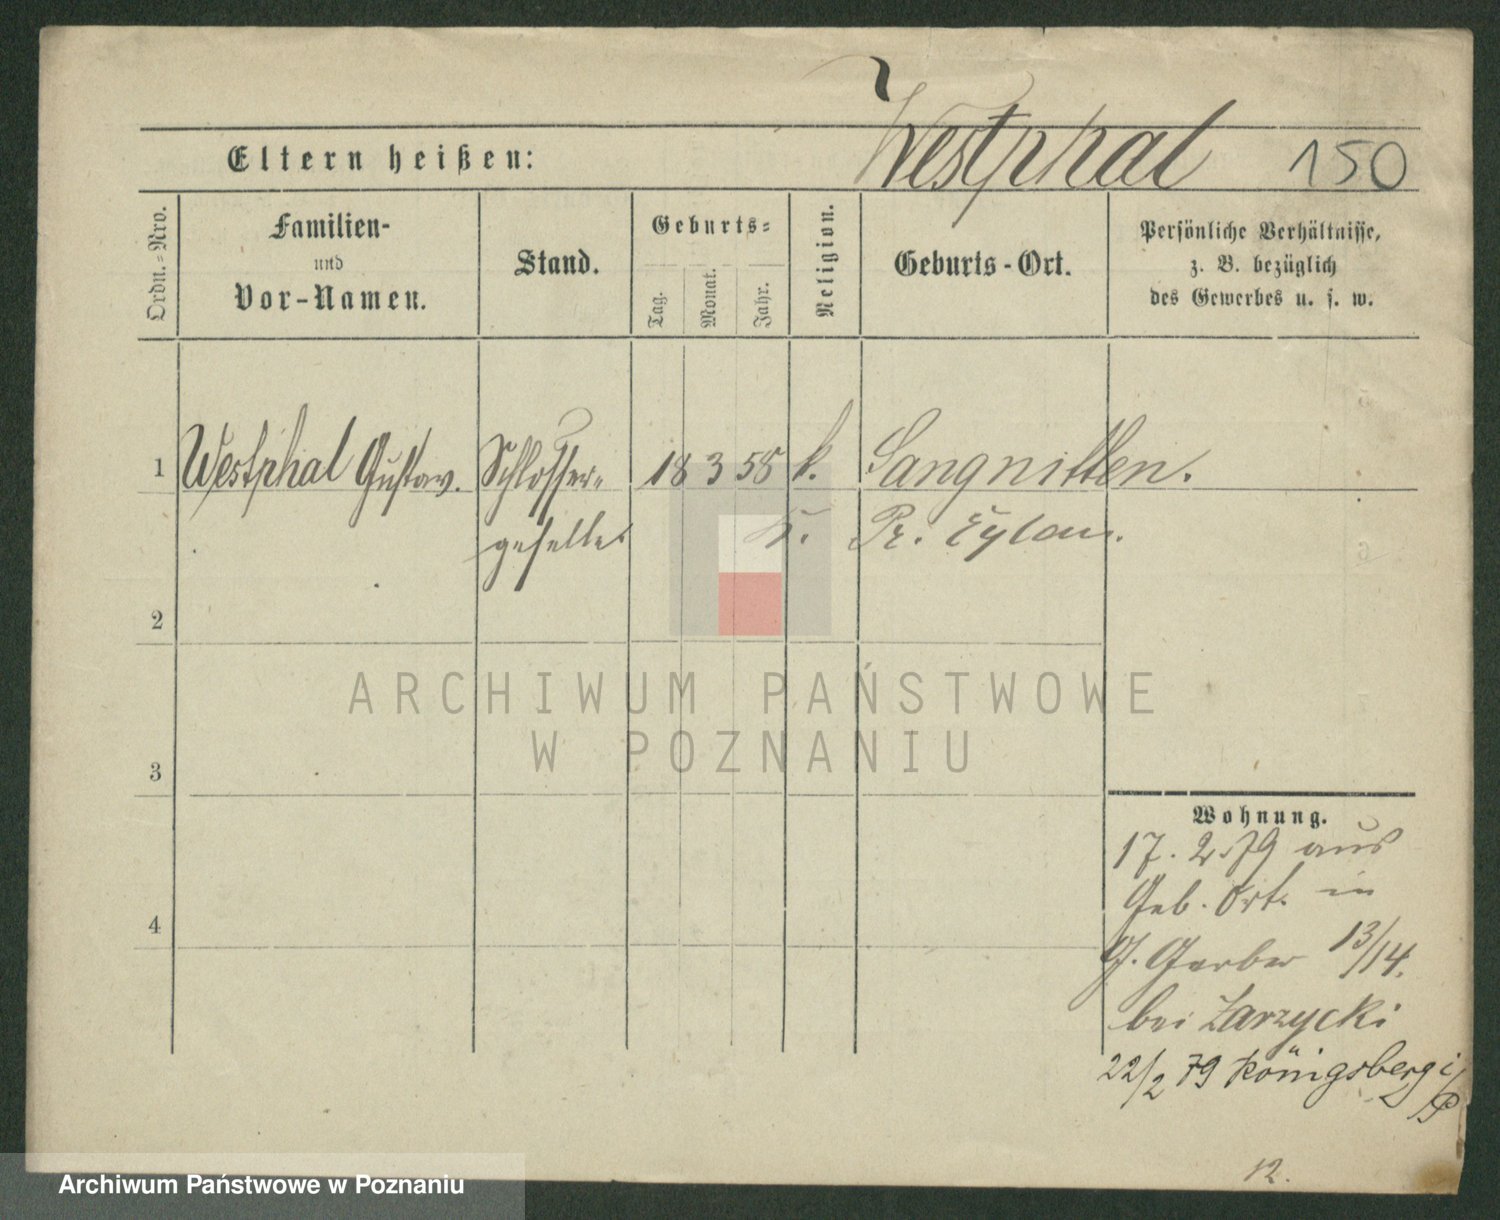 Westphal 150
Eltern heißen:
Ordn.=Nro.
Familien-
und
Vor-Namen.
Stand.
Geburts=
Tag.
Monat.
Jahr.
Religion.
Geburts-Ort.
Persönliche Verhältnisse,
z. B. bezüglich
des Gewerbes u. s. w.
1 Westphal Gustav. Schlosser= 18 3 58 k. Sangnitten.
geselle K. Pr. Eylau.
2
3
4
ARCHIWUM PAŃSTWOWE
W POZNANIU
Wohnung.
17. 2. 79 aus
Geb. Ort. in
G. Gerber 13/14.
bei Zarzycki
22/2 79 Königsberg i/P
12.
Archiwum Państwowe w Poznaniu